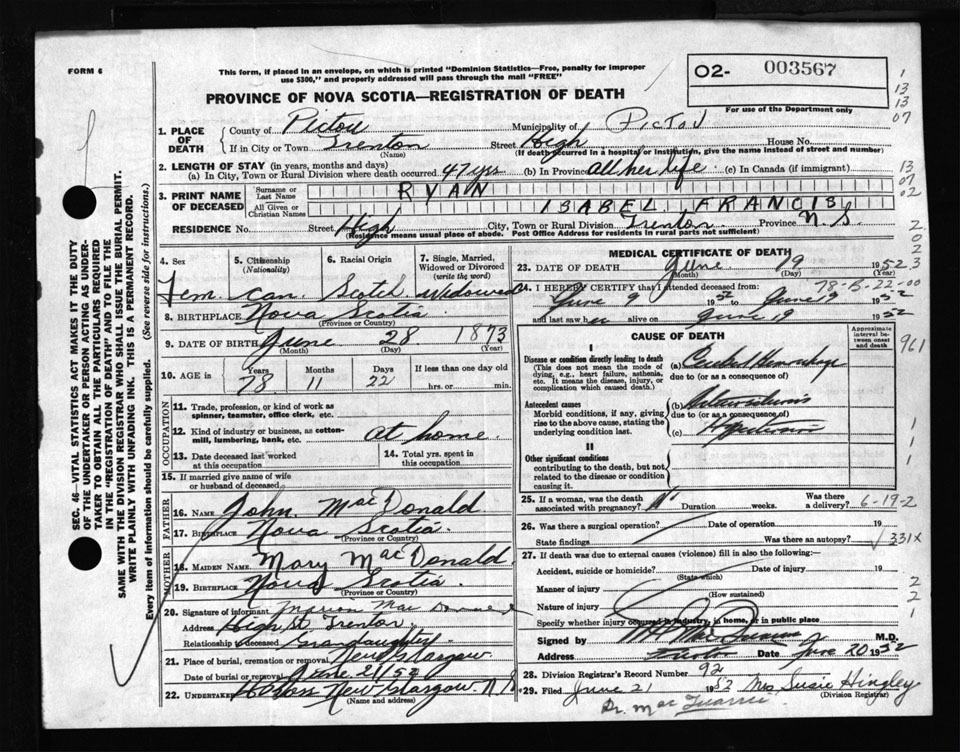 FORM 6
This form, if placed in an envelope, on which is printed "Dominion Statistics—Free, penalty for improper
use $300," and properly addressed will pass through the mail "FREE"
O2- 003567
For use of the Department only
PROVINCE OF NOVA SCOTIA—REGISTRATION OF DEATH
1
13
13
07
13
07
02
2
0
2
3
1. PLACE OF DEATH
County of Pictou Municipality of Pictou
If in City or Town Trenton Street High House No.
(Name) (If death occurred in a hospital or institution, give the name instead of street and number)
2. LENGTH OF STAY (in years, months and days)
(a) In City, Town or Rural Division where death occurred 47 yrs (b) In Province all her life (c) In Canada (if immigrant)
3. PRINT NAME OF DECEASED
Surname or Last Name RYAN
All Given or Christian Names ISABEL FRANCIS
RESIDENCE No. Street High City, Town or Rural Division Trenton Province N.S
(Residence means usual place of abode. Post Office Address for residents in rural parts not sufficient)
4. Sex 5. Citizenship (Nationality) 6. Racial Origin 7. Single, Married, Widowed or Divorced (write the word)
Fem. can. Scotch. Widowed
8. BIRTHPLACE Nova Scotia
(Province or Country)
9. DATE OF BIRTH June 28 1873
(Month) (Day) (Year)
10. AGE in Years Months Days If less than one day old
78 11 22 hrs. or min.
OCCUPATION
11. Trade, profession, or kind of work as
spinner, teamster, office clerk, etc.
12. Kind of industry or business, as cotton-
mill, lumbering, bank, etc. at home.
13. Date deceased last worked
at this occupation
14. Total yrs. spent in
this occupation
15. If married give name of wife
or husband of deceased
FATHER
16. NAME John MacDonald
17. BIRTHPLACE Nova Scotia.
(Province or Country)
MOTHER
18. MAIDEN NAME Mary MacDonald
19. BIRTHPLACE Nova Scotia
(Province or Country)
20. Signature of informant Marion Mac
Address High St Trenton.
Relationship to deceased Grandaughter
21. Place of burial, cremation or removal New Glasgow.
Date of burial or removal June 21/52
22. UNDERTAKER New Glasgow N S
(Name and address)
MEDICAL CERTIFICATE OF DEATH
23. DATE OF DEATH June 19 1952
(Month) (Day) (Year)
78-B-22-00
24. I HEREBY CERTIFY that I attended deceased from:
June 9 1952 to June 19 1952
and last saw her alive on June 19 1952
CAUSE OF DEATH
Approximate interval between onset and death
961
I
Disease or condition directly leading to death
(This does not mean the mode of
dying, e.g., heart failure, asthenia,
etc. It means the disease, injury, or
complication which caused death.)
(a) Cerebral Hemorrhage
due to (or as a consequence of)
Antecedent causes
Morbid conditions, if any, giving
rise to the above cause, stating the
underlying condition last.
(b) Arteriosclerosis
due to (or as a consequence of)
(c) Hypertension
II
Other significant conditions
contributing to the death, but not
related to the disease or condition
causing it.
1
1
1
25. If a woman, was the death
associated with pregnancy? Duration weeks. Was there
a delivery? 6-19-2
26. Was there a surgical operation? Date of operation 19
State findings Was there an autopsy? 331X
27. If death was due to external causes (violence) fill in also the following:—
Accident, suicide or homicide? Date of injury 19
(State which)
Manner of injury
(How sustained)
Nature of injury
Specify whether injury occurred in industry, in home, or in public place
2
2
1
Signed by M.D.
Address Trenton Date June 20 1952
28. Division Registrar's Record Number 92
29. Filed June 21 1952 Mrs Susie Hingley
(Division Registrar)
Dr. Mac
SEC. 46—VITAL STATISTICS ACT MAKES IT THE DUTY
OF THE UNDERTAKER OR PERSON ACTING AS UNDER-
TAKER TO OBTAIN ALL THE PARTICULARS REQUIRED
IN THE "REGISTRATION OF DEATH" AND TO FILE THE
SAME WITH THE DIVISION REGISTRAR WHO SHALL ISSUE THE BURIAL PERMIT.
WRITE PLAINLY WITH UNFADING INK. THIS IS A PERMANENT RECORD.
Every item of information should be carefully supplied. (See reverse side for instructions.)